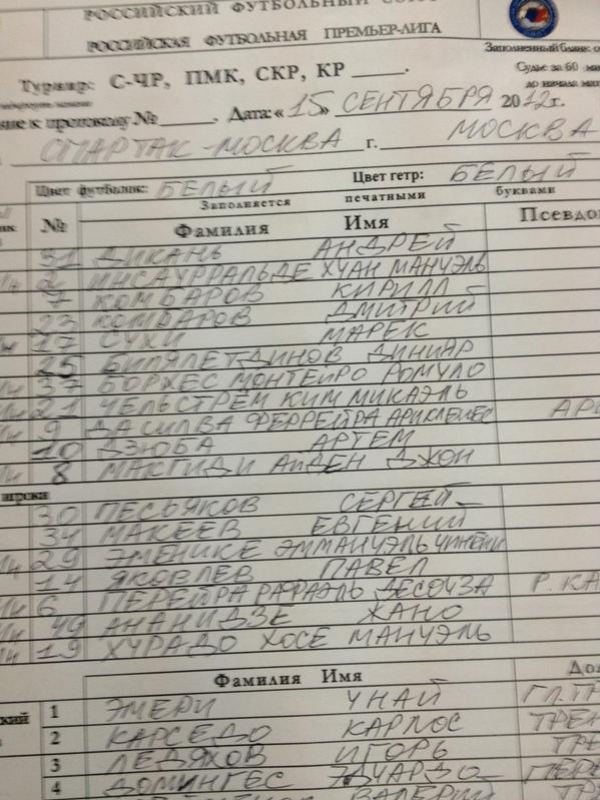 РОССИЙСКИЙ ФУТБОЛЬНЫЙ
РОССИЙСКАЯ ФУТБОЛЬНАЯ ПРЕМЬЕР-ЛИГА
Заполненный бланк
Турнир: С-ЧР, ПМК, СКР, КР ____.
Судье за 60
до начала
к протоколу №______. Дата: «15» СЕНТЯБРЯ 2012г.
СПАРТАК-МОСКВА г. МОСКВА
Цвет футболок: БЕЛЫЙ Цвет гетр: БЕЛЫЙ
Заполняется печатными буквами
№ Фамилия Имя
31 ДИКАНЬ АНДРЕЙ
2 ИНСАУРРАЛЬДЕ ХУАН МАНУЭЛЬ
7 КОМБАРОВ КИРИЛЛ
23 КОМБАРОВ ДМИТРИЙ
17 СУХИ МАРЕК
25 БИЛЯЛЕТДИНОВ ДИНИЯР
37 БОРХЕС МОНТЕЙРО РОМУЛО
21 ЧЕЛЬСТРЕМ КИМ МИКАЭЛЬ
9 ДА СИЛВА ФЕРРЕЙРА АРИКЛЕНЕС
10 ДЗЮБА АРТЕМ
8 МАКГИДИ АЙДЕН ДЖОН
30 ПЕСЬЯКОВ СЕРГЕЙ
34 МАКЕЕВ ЕВГЕНИЙ
29 ЭМЕНИКЕ ЭММАНУЭЛЬ ЧИНЕНИ
14 ЯКОВЛЕВ ПАВЕЛ
6 ПЕРЕЙРА РАФАЭЛЬ ДЕ СОУЗА Р. КА
49 АНАНИДЗЕ ЖАНО
19 ХУРАДО ХОСЕ МАНУЭЛЬ
Фамилия Имя
1 ЭМЕРИ УНАЙ ГЛ.ТР
2 КАРСЕДО КАРЛОС ТРЕН
3 ЛЕДЯХОВ ИГОРЬ ТРЕ
4 ДОМИНГЕС ЭДУАРДО ПЕРЕ
ВАЛЕРИЙ